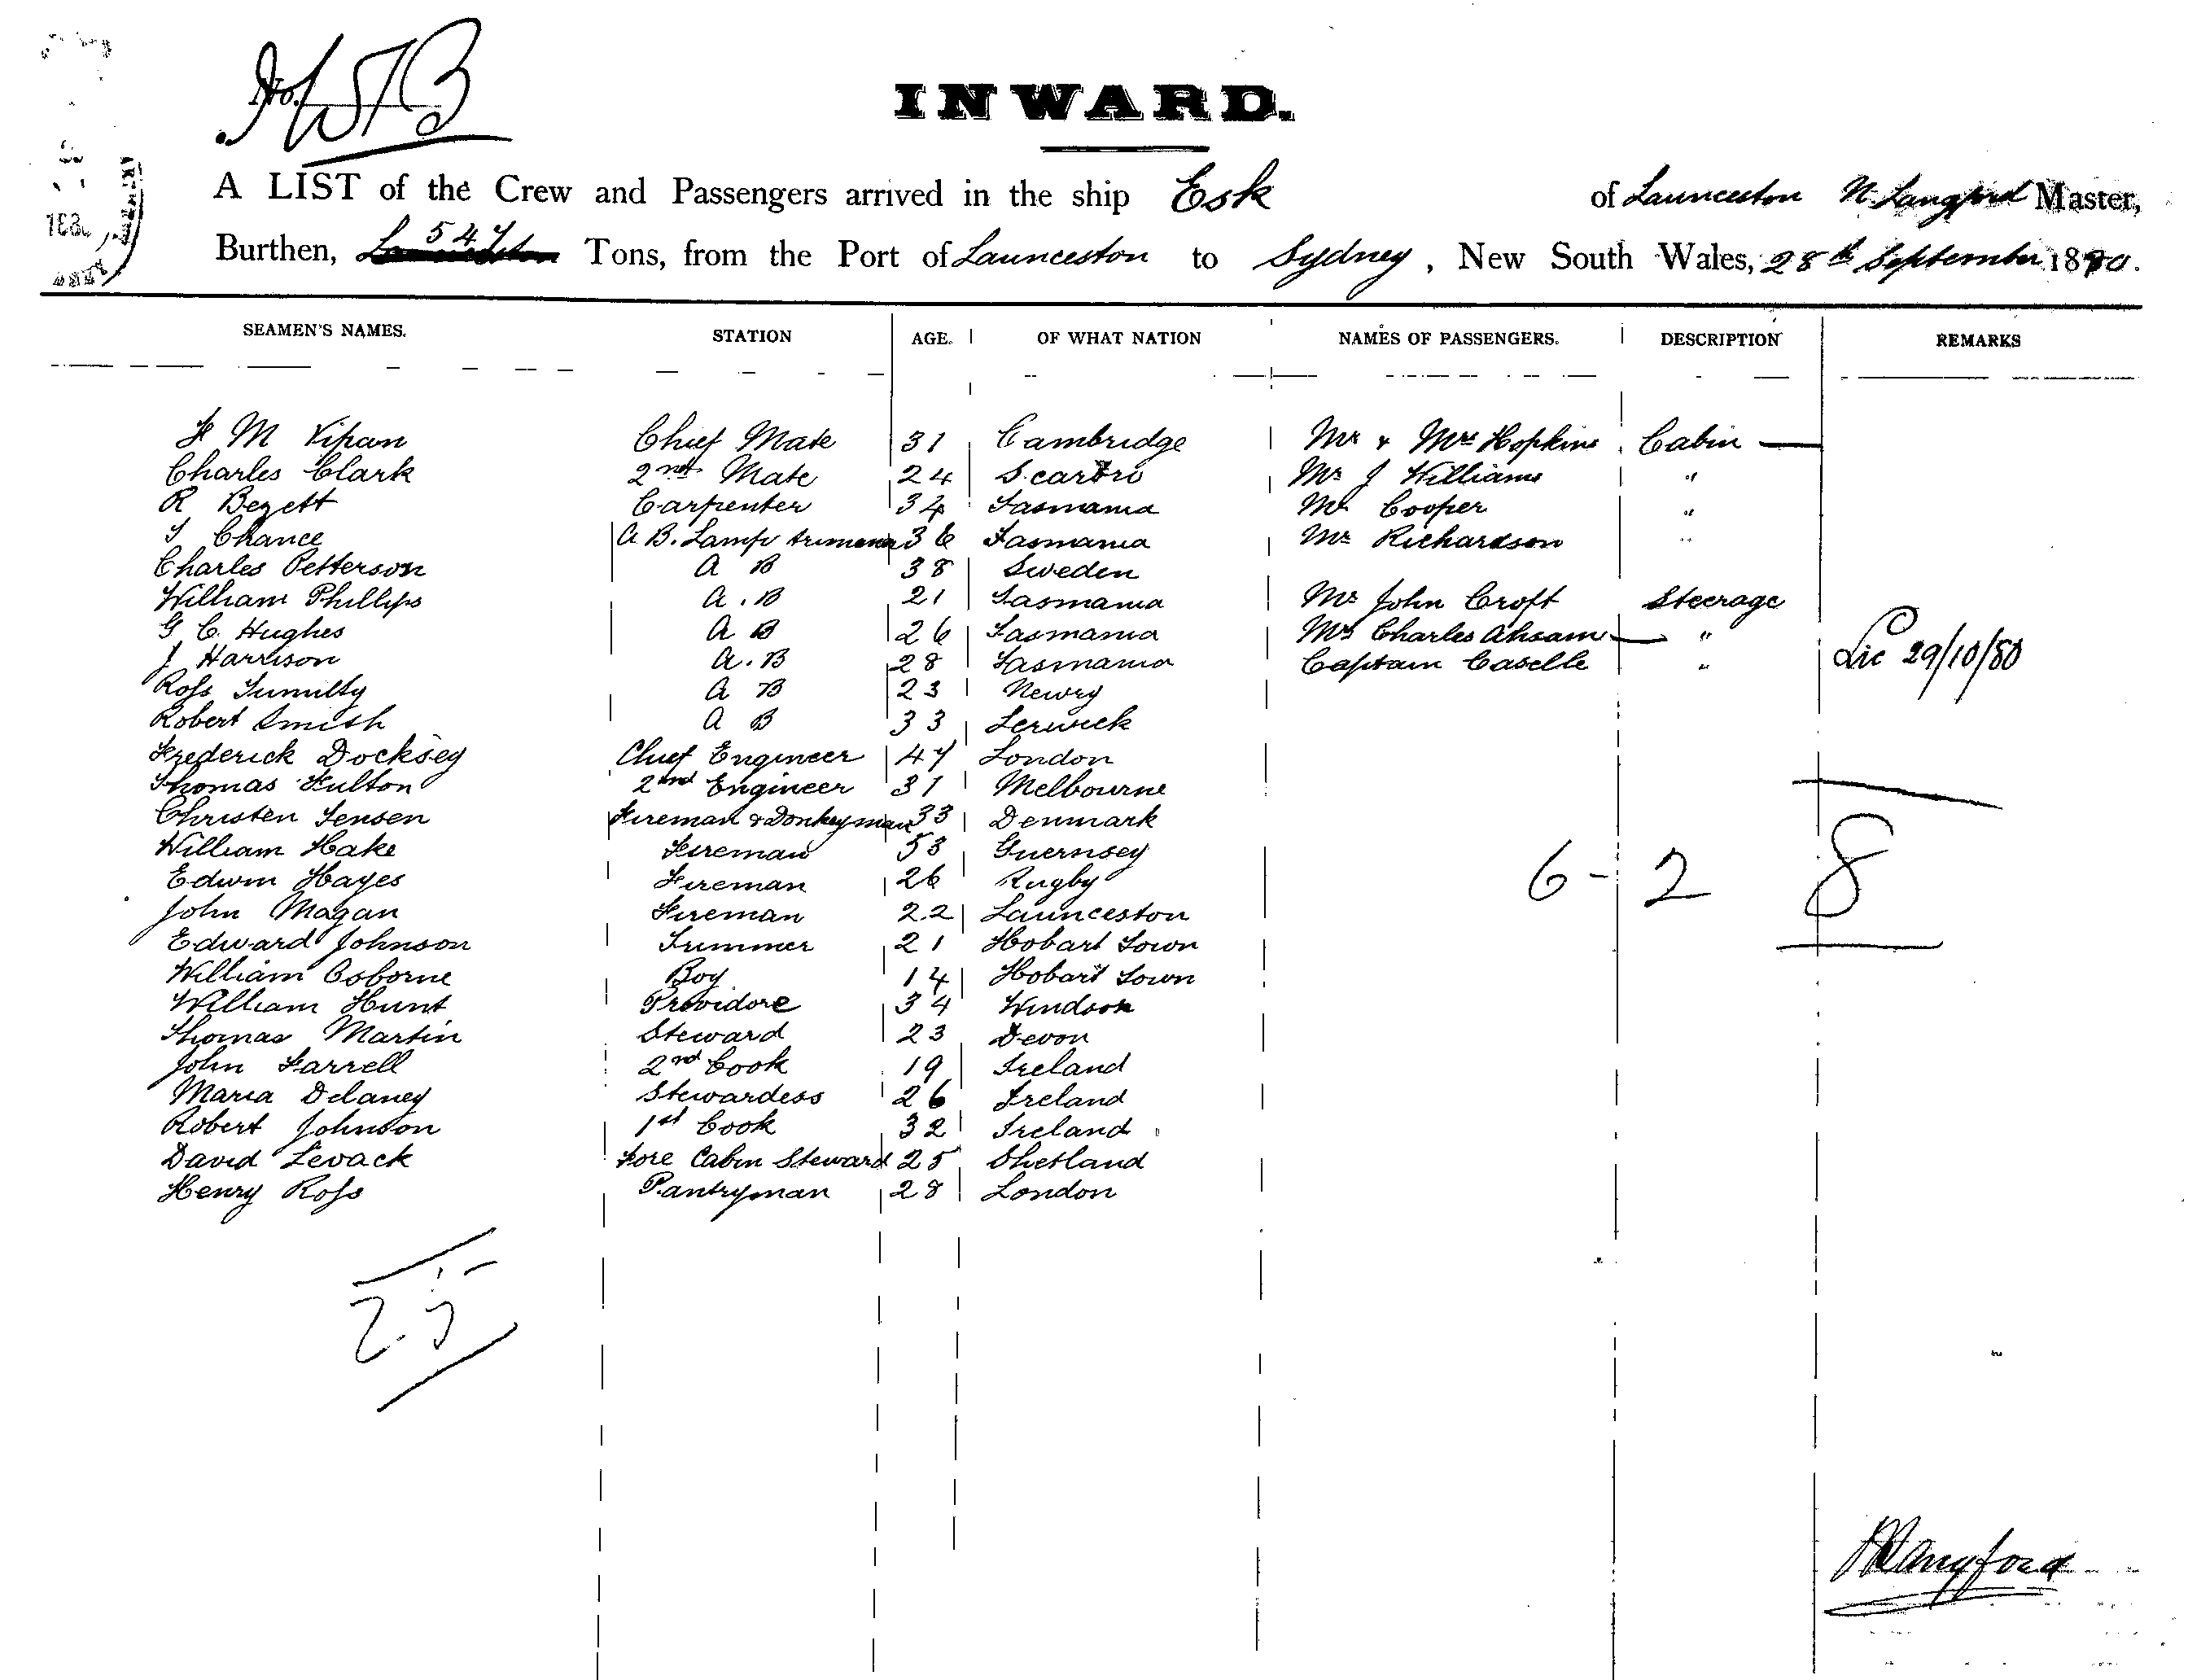 INWARD.
A LIST of the Crew and Passengers arrived in the ship Esk of Launceston N Langford Master,
Burthen, 547 Tons, from the Port of Launceston to Sydney, New South Wales, 28th September 1880.
SEAMEN'S NAMES. STATION AGE. OF WHAT NATION NAMES OF PASSENGERS. DESCRIPTION REMARKS
F M Vipan Chief Mate 31 Cambridge Mr & Mrs Hopkins Cabin
Charles Clark 2nd Mate 24 Mr J Williams "
R Bezett Carpenter 34 Tasmania Mr Cooper "
T Chance A B. Lamp trimmer 36 Tasmania Mr Richardson "
Charles Petterson A B 38 Sweden
William Phillips A. B 21 Tasmania Mr John Croft Steerage
G C. Hughes A B 26 Tasmania Charles Ahsam "
J Harrison A. B 28 Tasmania Captain Caselle "
Lic 29/10/80
Ross Tumilty A B 23 Newry
Robert Smith A B 33 Lerwick
Frederick Docksey Chief Engineer 47 London
Thomas Fulton 2nd Engineer 31 Melbourne
Christen Jensen Fireman & Donkeyman 33 Denmark
William Hake Fireman 53 Guernsey
Edwin Hayes Fireman 26 Rugby
6 - 2 8
John Magan Fireman 22 Launceston
Edward Johnson Trimmer 21 Hobart Town
William Osborne Boy 14 Hobart Town
William Hunt Providore 34 Windsor
Thomas Martin Steward 23 Devon
John Farrell 2nd Cook 19 Ireland
Maria Delaney Stewardess 26 Ireland
Robert Johnson 1st Cook 32 Ireland
David Levack Fore Cabin Steward 25 Shetland
Henry Ross Pantryman 28 London
25
Langford